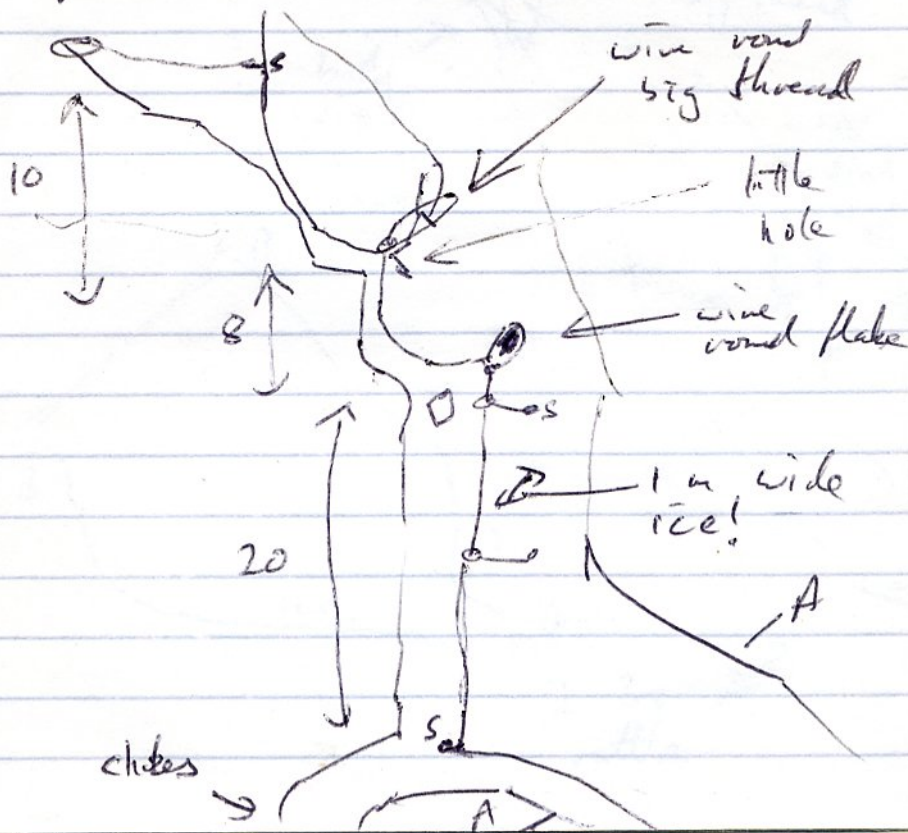 s
wire round
big thread
10
little
hole
8
wire
round flake
s
1 m wide
ice!
20
A
s
chokes
A